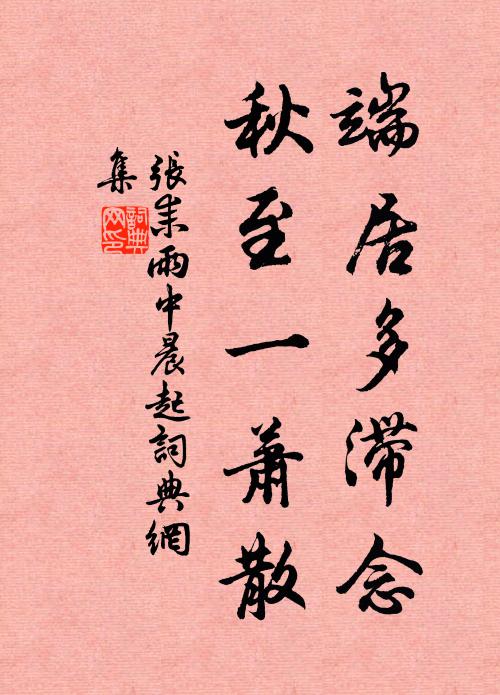 端居多滞念
秋至一蕭散
張耒雨中晨起詞典網
集
詞典
网印